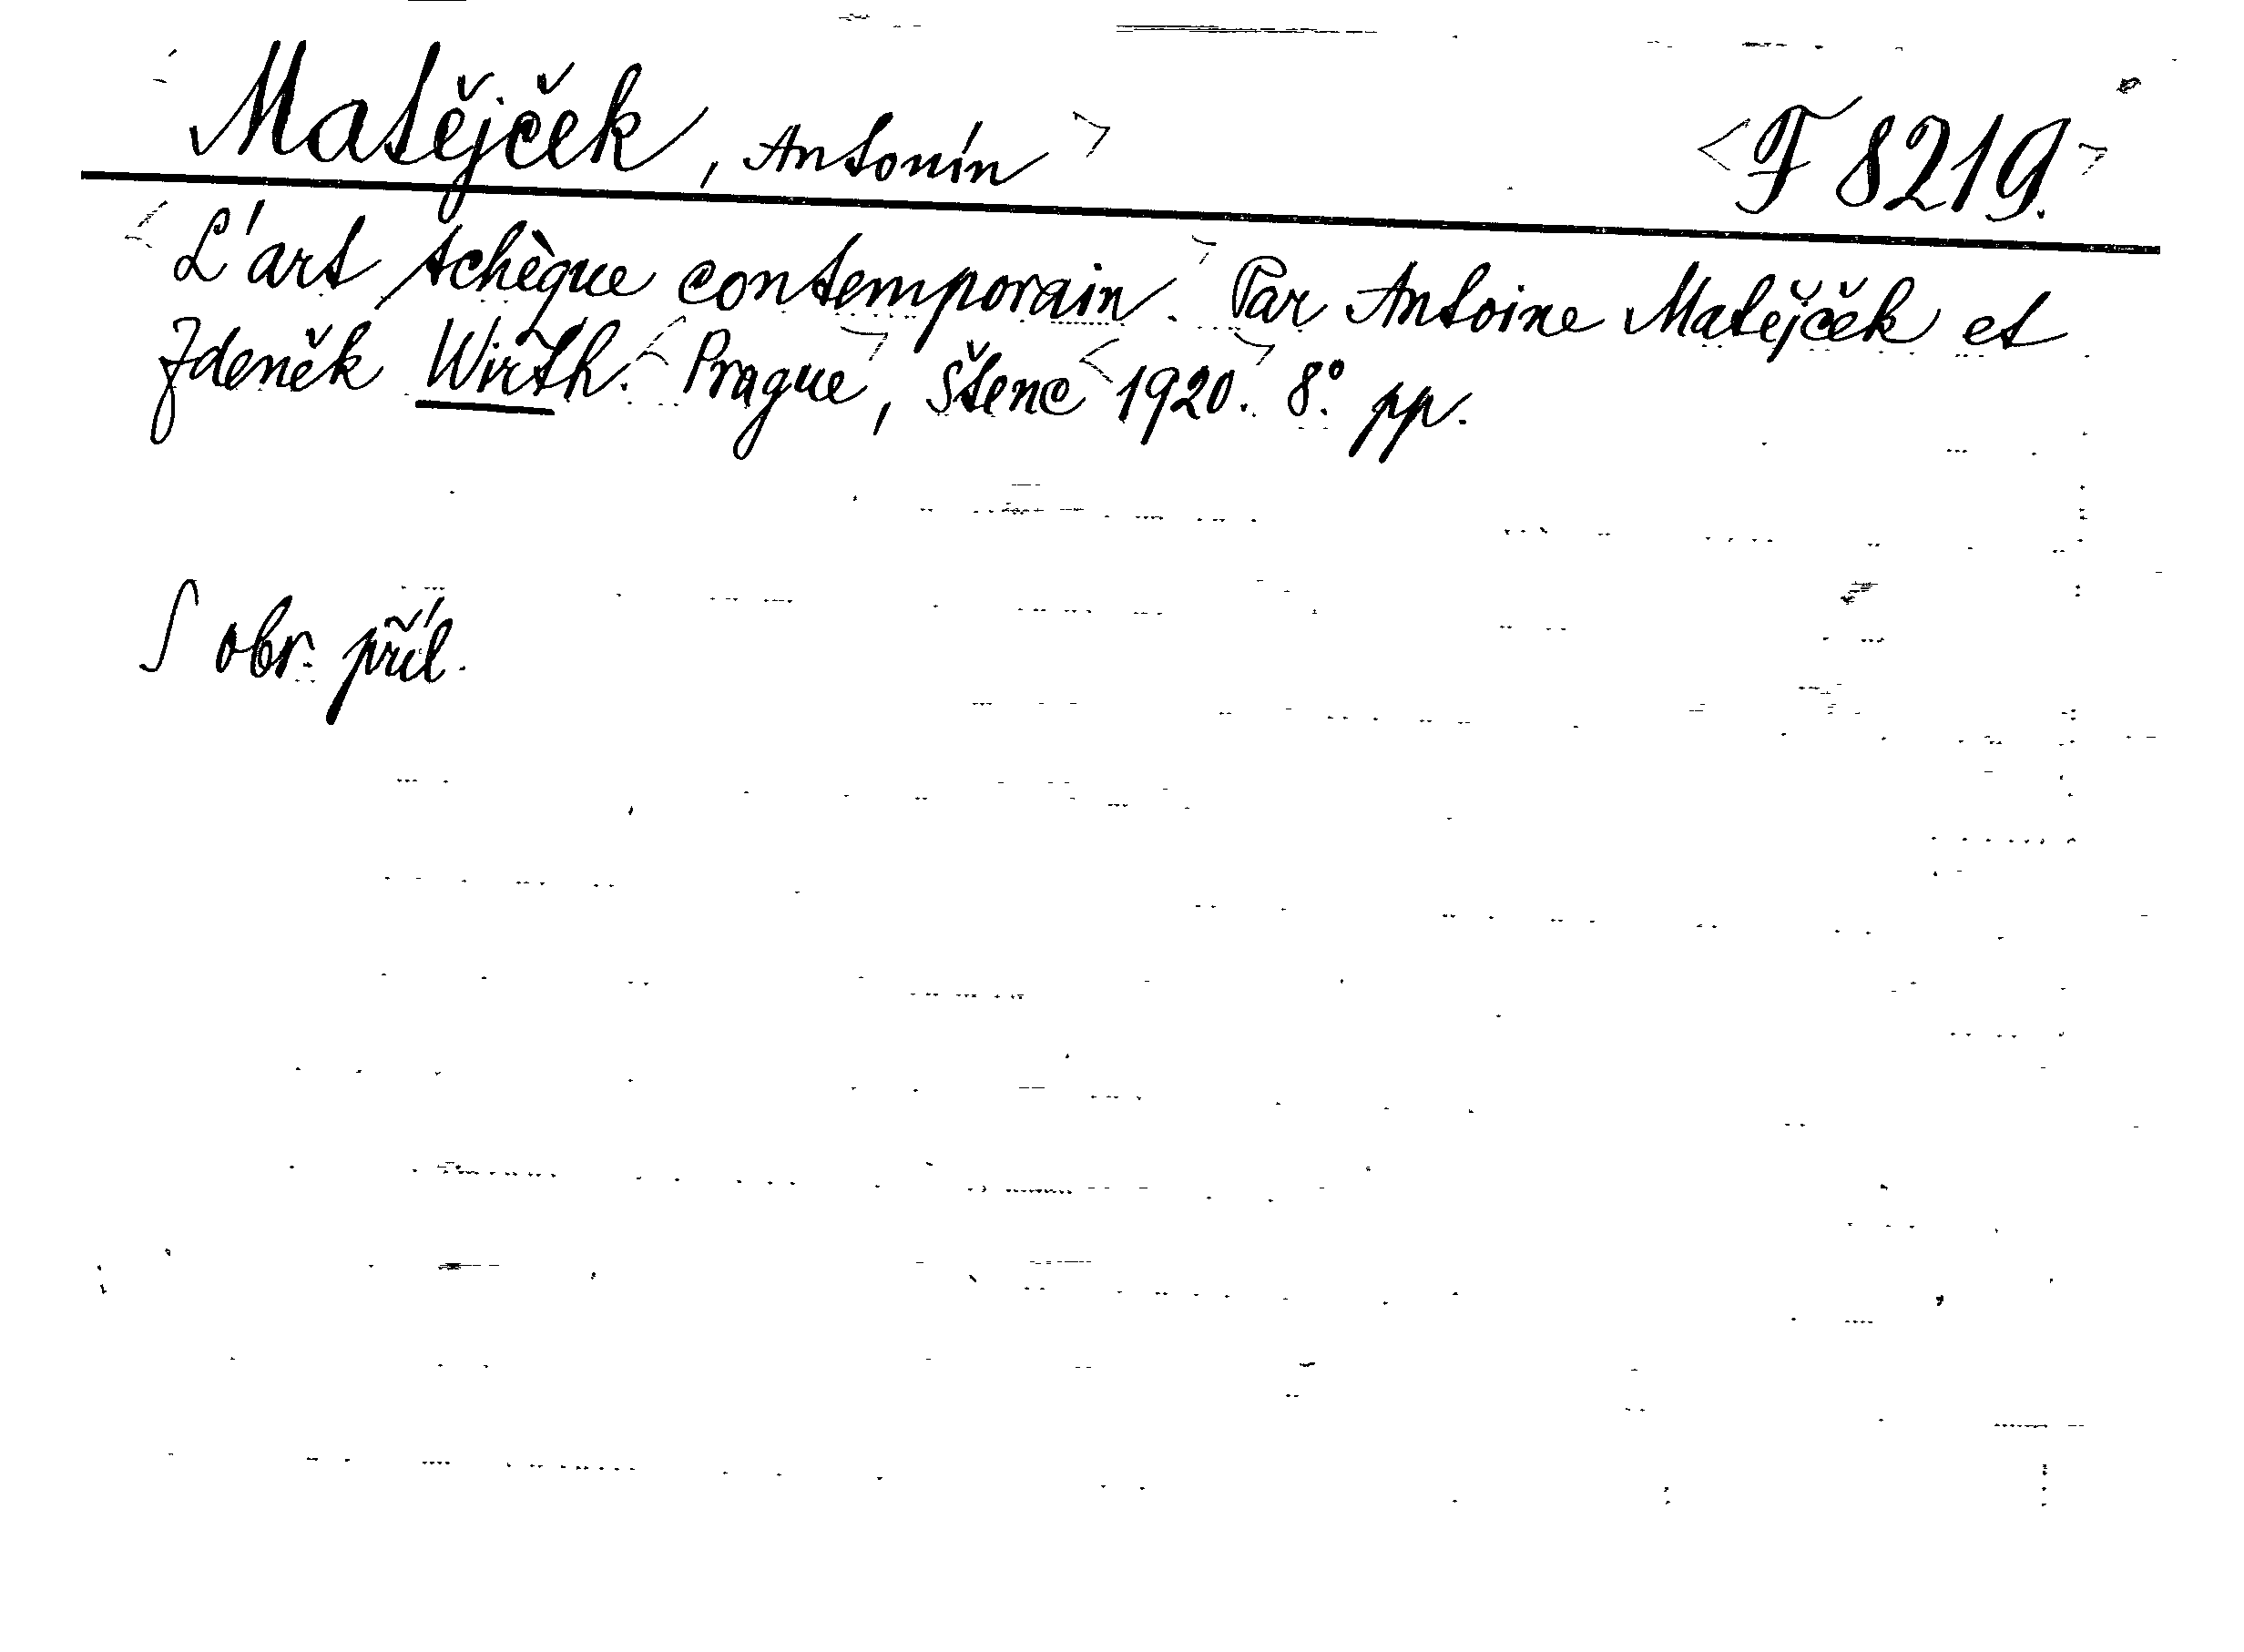 Matějček, Antonín > <F 8219.>
<L'art tchèque contemporain.> Par Antoine Matějček et
Zdeněk Wirth. <Prague>, Štenc <1920.> 8°. pp.
S obr. příl.